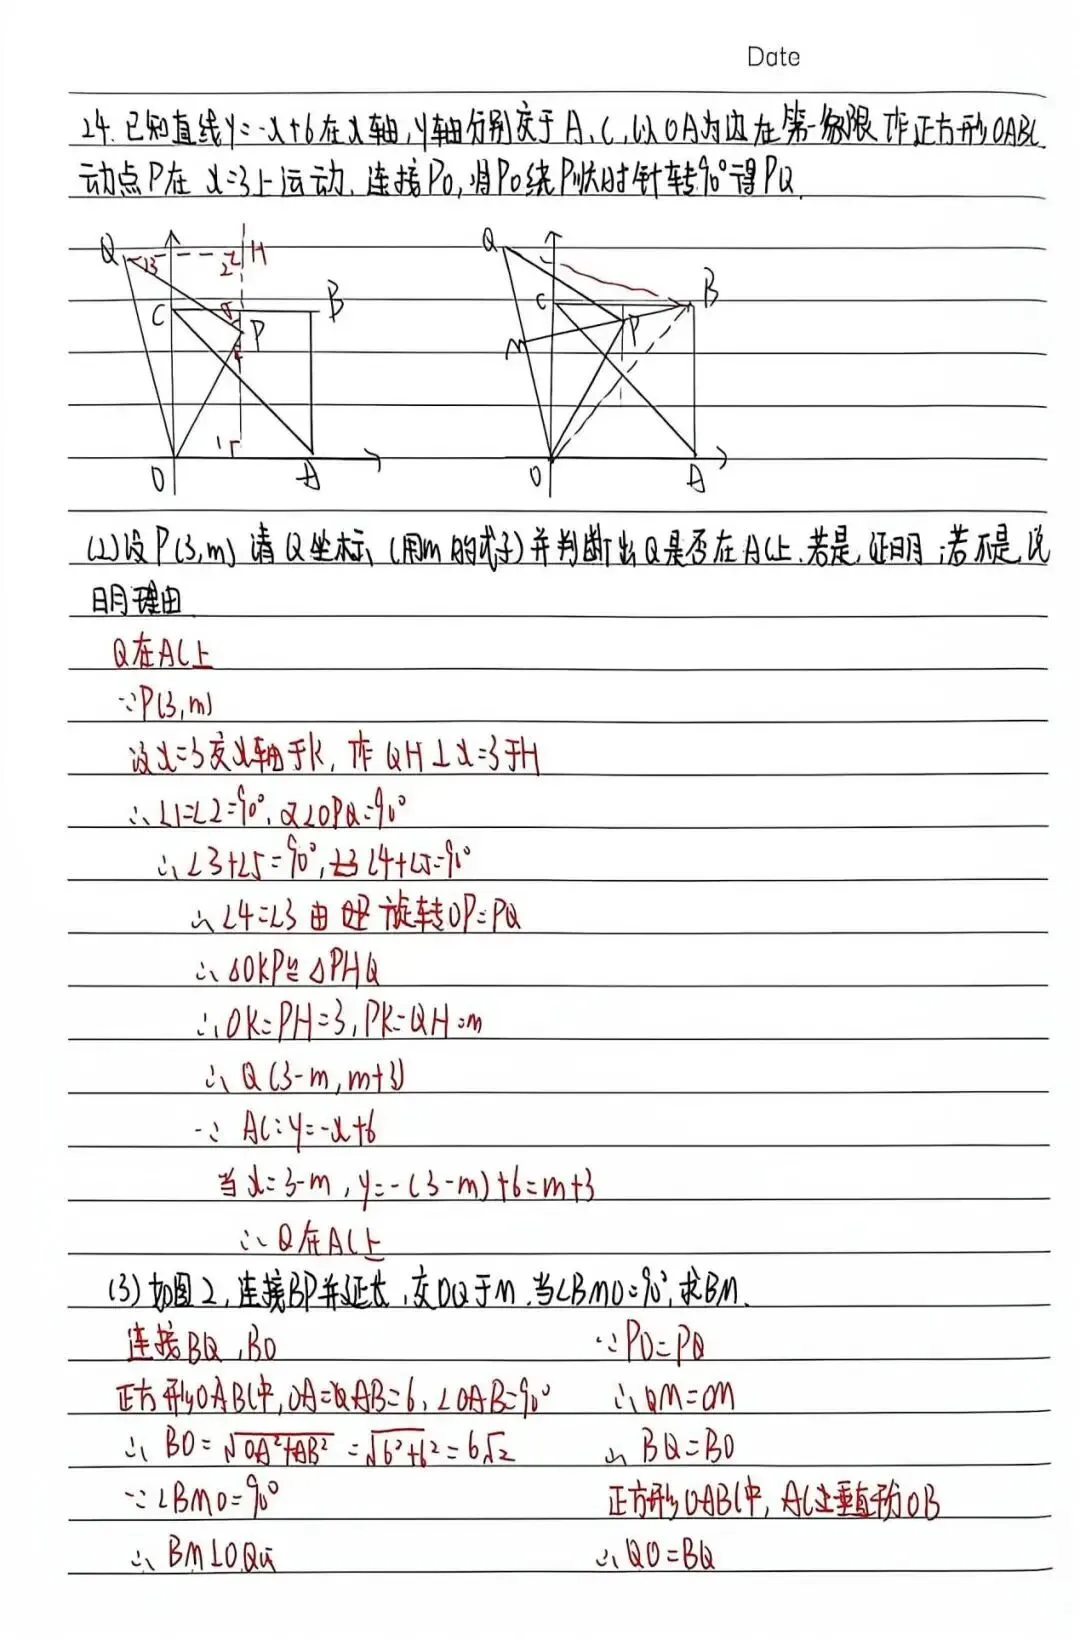 Date
24. 已知直线y=-x+6在x轴,y轴分别交于A、C,以OA为边在第一象限作正方形OABC
动点P在 x=3上运动. 连接PO,将PO绕P顺时针转90°得PQ
Q 3 2 H
C 5 B
P
4
1
O A
Q
C B
P
M
O A
(2)设P(3,m) 请Q坐标、(用m的式子)并判断出Q是否在AC上.若是,证明;若不是,说
明理由
Q在AC上
∵P(3,m)
设x=3交x轴于K, 作QH⊥x=3于H
∴∠1=∠2=90°,又∠OPQ=90°
∴∠3+∠5=90°,∠4+∠5=90°
∴∠4=∠3 由 旋转OP=PQ
∴△OKP≌△PHQ
∴OK=PH=3,PK=QH=m
∴Q(3-m,m+3)
∵AC:y=-x+6
当x=3-m,y=-(3-m)+6=m+3
∴Q在AC上
(3)如图2,连接BP并延长,交OQ于M.当∠BMO=90°,求BM.
连接BQ,BO
正方形OABC中,OA=AB=6,∠OAB=90°
∴BO=√OA²+AB²=√6²+6²=6√2
∵∠BMO=90°
∴BM⊥OQ
∵PO=PQ
∴QM=OM
∴BQ=BO
正方形OABC中,AC垂直平分OB
∴QO=BQ